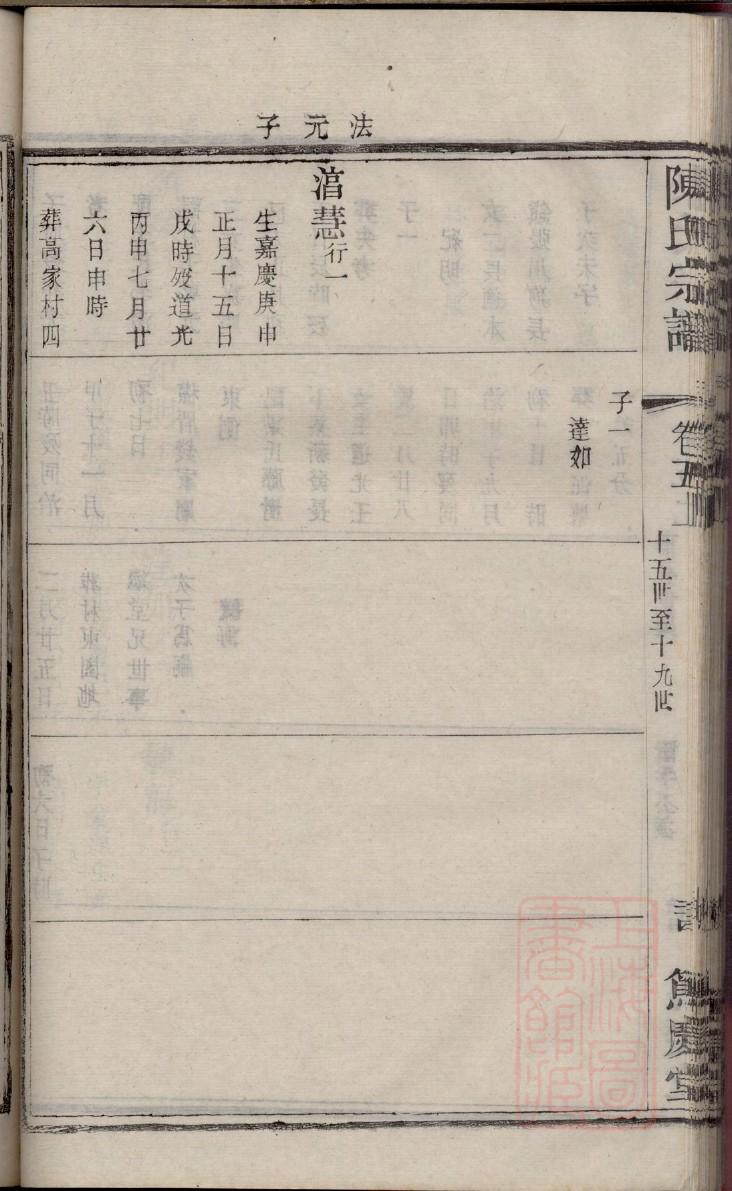 法元子
陳氏宗譜
卷五上
十五世至十九世
慶堂
子一
達如
慧行一
生嘉慶庚申
正月十五日
戌時歿道光
丙申七月廿
六日申時
葬高家村四
上海圖書館藏